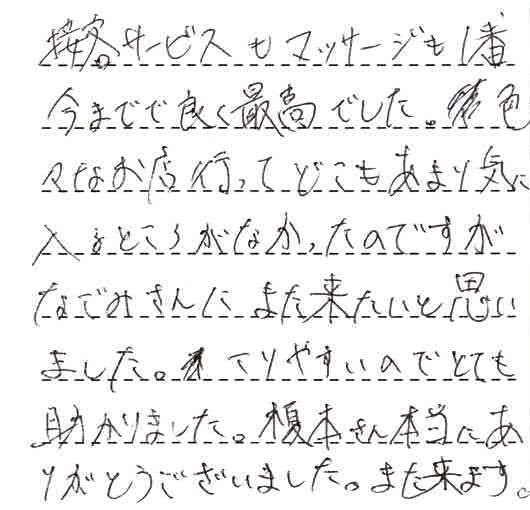 接客サービスもマッサージも1番
今までで良く最高でした。色
々なお店行ってどこもあまり気に
入るところがなかったのですが
なごみさんにまた来たいと思い
ました。こりやすいのでとても
助かりました。榎本さん本当にあ
りがとうございました。また来ます。